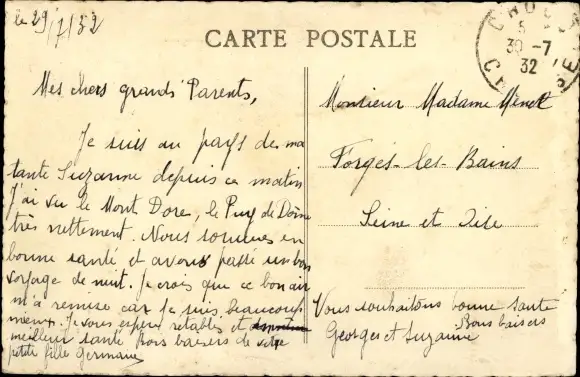 le 29/7/32
CARTE POSTALE
30 -7
32
Mes chers grands Parents,
Je suis au pays de ma
tante Suzanne depuis ce matin
J'ai vu le Mont Dore, le Puy de Dôme
très nettement. Nous sommes en
bonne santé et avons passé un bon
voyage de nuit. Je crois que ce bon air
m'a remise car je suis beaucoup
mieux. Je vous espère rétablis et
meilleur santé bons baisers de votre
petite fille Germaine
Monsieur Madame
Forges-les-Bains
Seine et Oise
Vous souhaitons bonne santé
Bons baisers
Georges et Suzanne